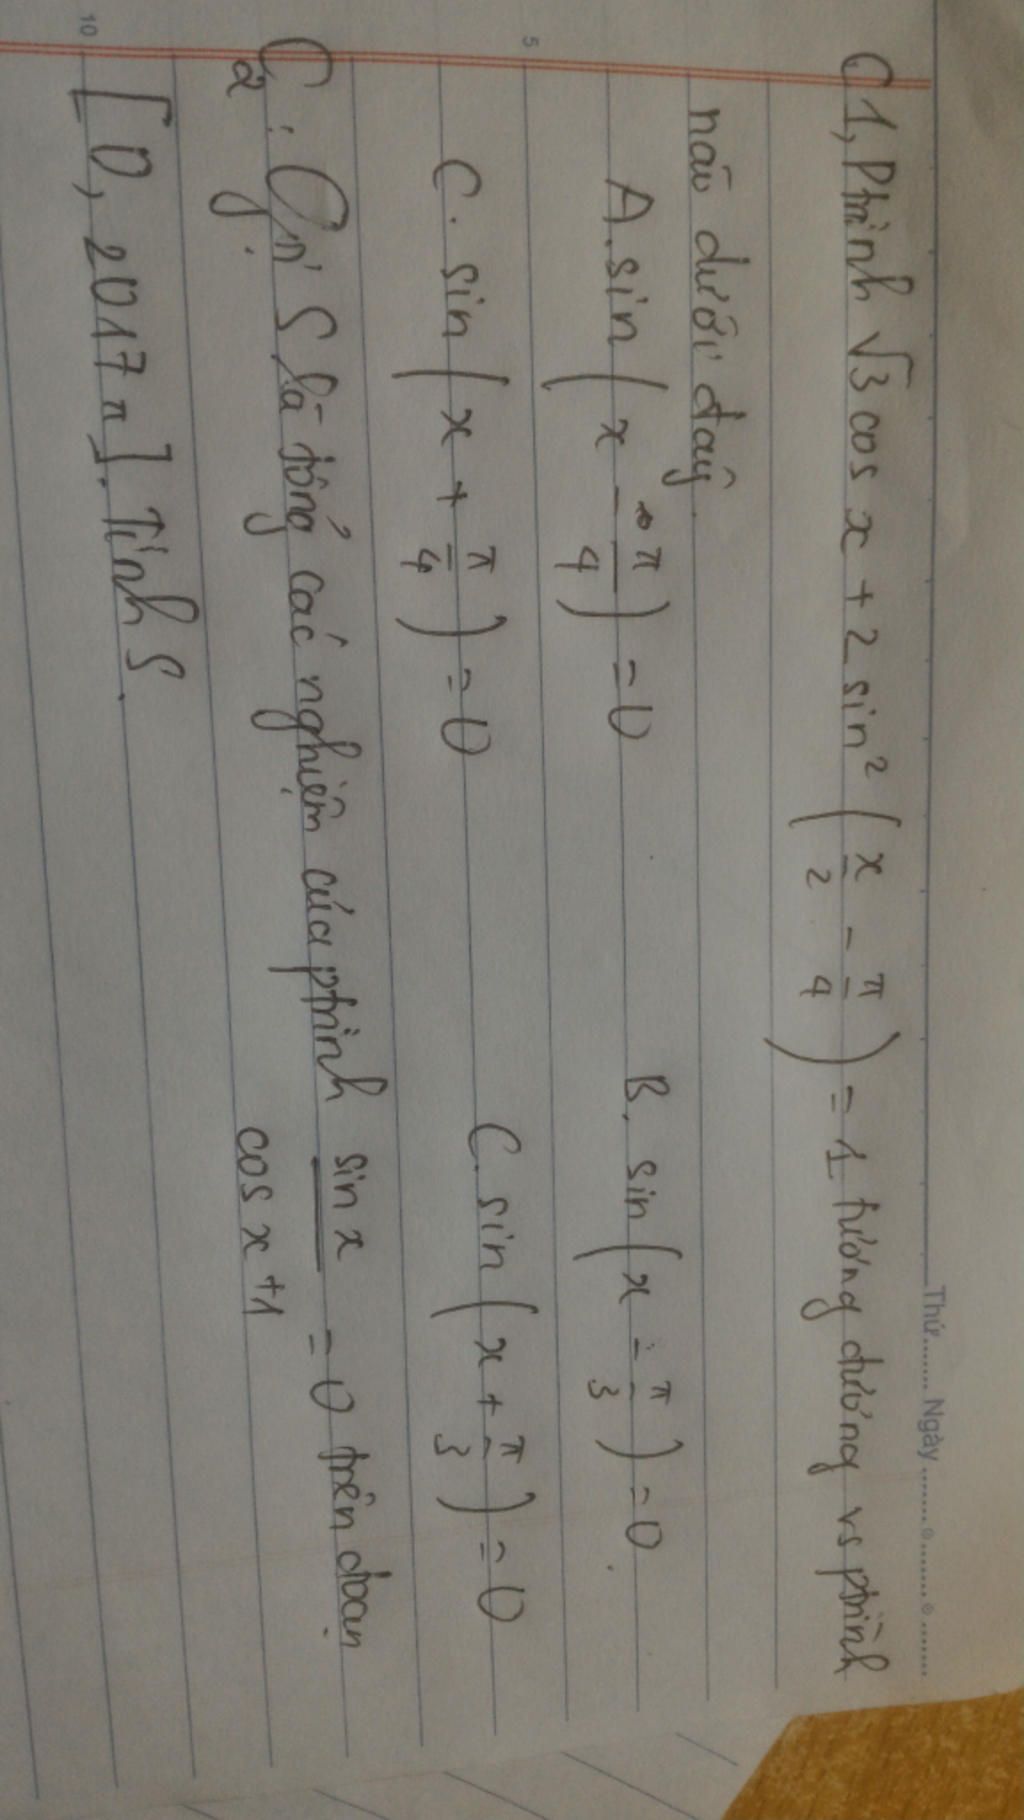 Thứ........ Ngày ........
C1, Ptrình √3 cos x + 2 sin² (x/2 - π/4) = 1 tương đương vs ptrình
nào dưới đây.
A. sin (x - π/4) = 0 B. sin (x - π/3) = 0.
5
C. sin (x + π/4) = 0 C. sin (x + π/3) = 0
C2: Gọi S là tổng các nghiệm của ptrình sin x / cos x +1 = 0 trên đoạn
10
[0, 2017π]. Tính S.